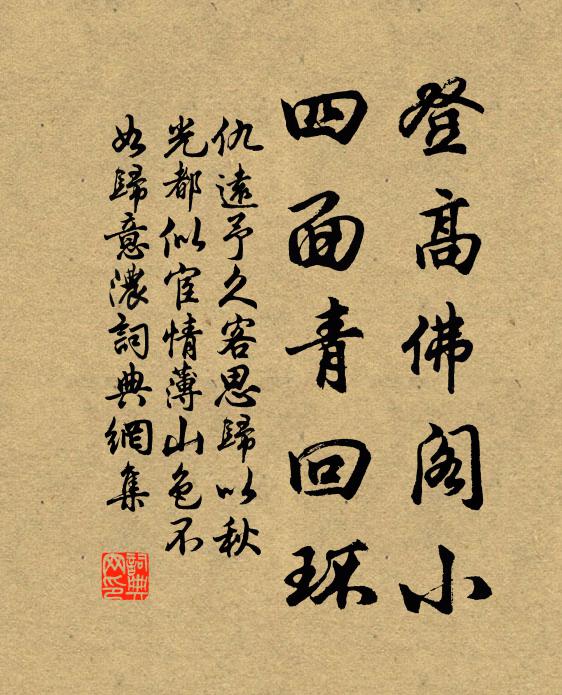 登高佛阁小
四面青回环
仇遠予久客思歸以秋
光都似宦情薄山色不
如歸意濃詞典網集
詞典网印